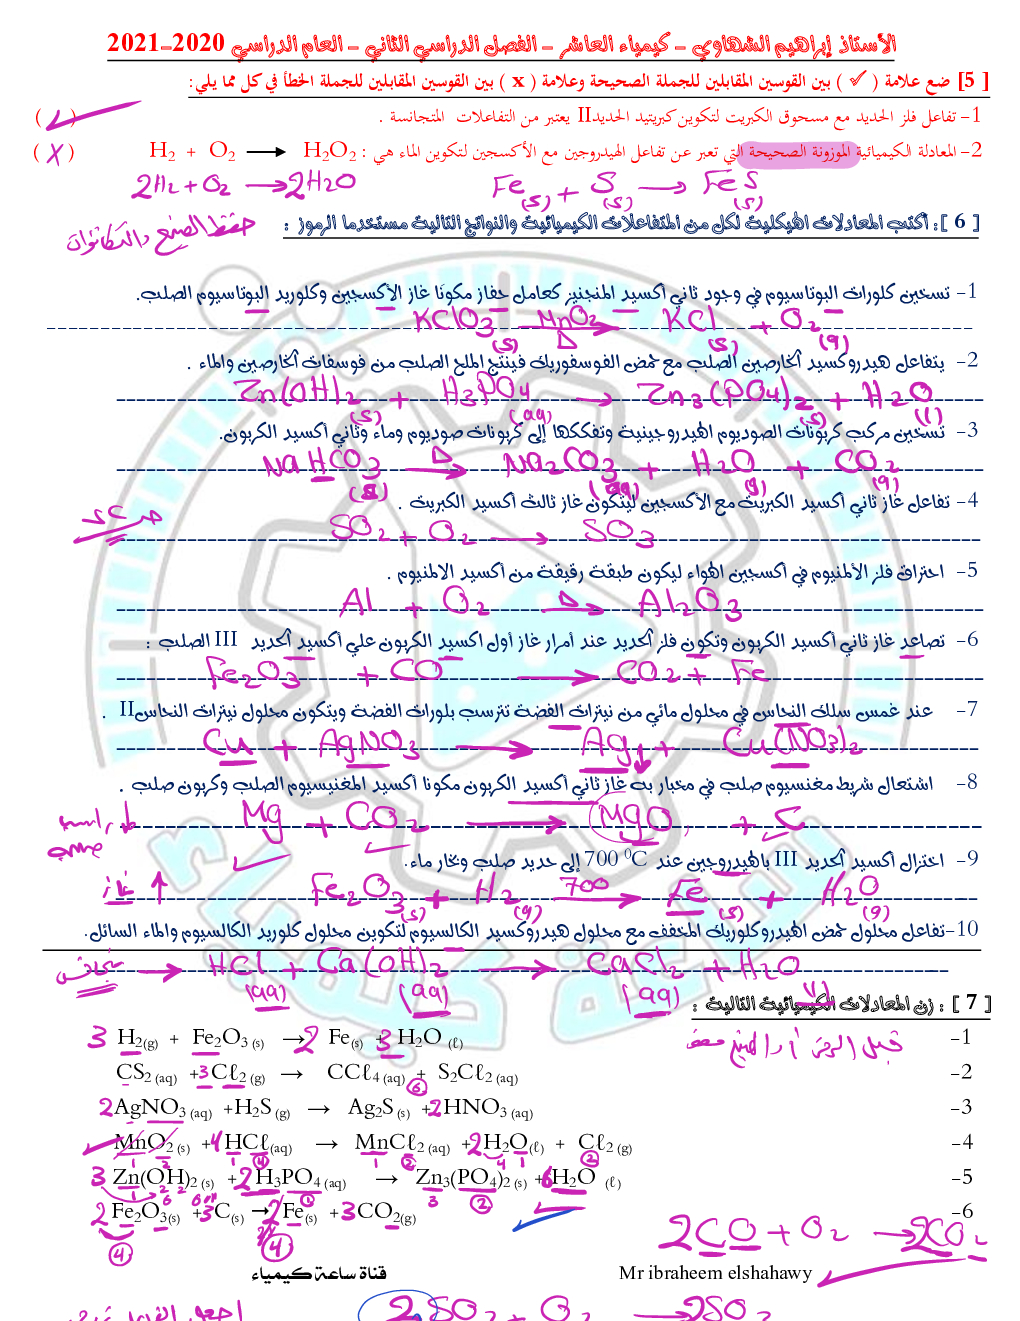 الأستاذ إبراهيم الشهاوي - كيمياء العاشر - الفصل الدراسي الثاني - العام الدراسي 2020-2021
[ 5 ] ضع علامة ( ✓ ) بين القوسين المقابلين للجملة الصحيحة وعلامة ( x ) بين القوسين المقابلين للجملة الخطأ في كل مما يلي:
1- تفاعل فلز الحديد مع مسحوق الكبريت لتكوين كبريتيد الحديدII يعتبر من التفاعلات المتجانسة . ( ✓ )
2- المعادلة الكيميائية الموزونة الصحيحة التي تعبر عن تفاعل الهيدروجين مع الأكسجين لتكوين الماء هي : H₂ + O₂ ⟶ H₂O₂ ( X )
2H₂ + O₂ → 2H₂O Fe(s) + S(s) → FeS(s)
[ 6 ]: أكتب المعادلات الهيكلية لكل من المتفاعلات الكيميائية والنواتج التالية مستخدما الرموز :
حفظ الصيغ والتكافؤات
1- تسخين كلورات البوتاسيوم في وجود ثاني أكسيد المنجنيز كعامل حفاز مكونا غاز الأكسجين وكلوريد البوتاسيوم الصلب.
KClO₃(s) MnO₂ → Δ KCl(s) + O₂(g)
2- يتفاعل هيدروكسيد الخارصين الصلب مع حمض الفوسفوريك فينتج الملح الصلب من فوسفات الخارصين والماء .
Zn(OH)₂(s) + H₃PO₄(aq) → Zn₃(PO₄)₂(s) + H₂O(l)
3- تسخين مركب كربونات الصوديوم الهيدروجينية وتفككها إلى كربونات صوديوم وماء وثاني أكسيد الكربون.
NaHCO₃(s) Δ → Na₂CO₃(aq) + H₂O(g) + CO₂(g)
4- تفاعل غاز ثاني أكسيد الكبريت مع الأكسجين ليتكون غاز ثالث أكسيد الكبريت .
SO₂ + O₂ → SO₃
5- احتراق فلز الألمنيوم في أكسجين الهواء ليكون طبقة رقيقة من أكسيد الالمنيوم .
Al + O₂ Δ → Al₂O₃
6- تصاعد غاز ثاني أكسيد الكربون وتكون فلز الحديد عند أمرار غاز أول اكسيد الكربون علي أكسيد الحديد III الصلب :
Fe₂O₃ + CO → CO₂ + Fe
7- عند غمس سلك النحاس في محلول مائي من نيترات الفضة تترسب بلورات الفضة ويتكون محلول نيترات النحاسII .
Cu + AgNO₃ → Ag↓ + Cu(NO₃)₂
8- اشتعال شريط مغنسيوم صلب في مخبار به غاز ثاني أكسيد الكربون مكونا أكسيد المغنيسيوم الصلب وكربون صلب .
Mg + CO₂ → MgO + C
9- اختزال أكسيد الحديد III بالهيدروجين عند 700 ⁰C إلى حديد صلب وبخار ماء.
غاز ↑ Fe₂O₃(s) + H₂(g) 700 → Fe(s) + H₂O(g)
10- تفاعل محلول حمض الهيدروكلوريك المخفف مع محلول هيدروكسيد الكالسيوم لتكوين محلول كلوريد الكالسيوم والماء السائل.
متجانس → HCl(aq) + Ca(OH)₂(aq) → CaCl₂(aq) + H₂O(l)
[ 7 ] : زن المعادلات الكيميائية التالية :
1- 3 H₂(g) + Fe₂O₃(s) → 2 Fe(s) + 3 H₂O (ℓ)
2- CS₂ (aq) + 3 Cℓ₂ (g) → CCℓ₄ (aq) + S₂Cℓ₂ (aq)
⑥
3- 2 AgNO₃ (aq) + H₂S (g) → Ag₂S (s) + 2 HNO₃ (aq)
4- MnO₂ (s) + 4 HCℓ(aq) → MnCℓ₂ (aq) + 2 H₂O(ℓ) + Cℓ₂ (g)
5- 3 Zn(OH)₂ (s) + 2 H₃PO₄ (aq) → Zn₃(PO₄)₂ (s) + 6 H₂O (ℓ)
6- 2 Fe₂O₃(s) + 3 C(s) → 2 Fe(s) + 3 CO₂(g)
④ ④
2CO + O₂ → 2CO₂
قناة ساعة كيمياء Mr ibraheem elshahawy
2SO₂ + O₂ → 2SO₃